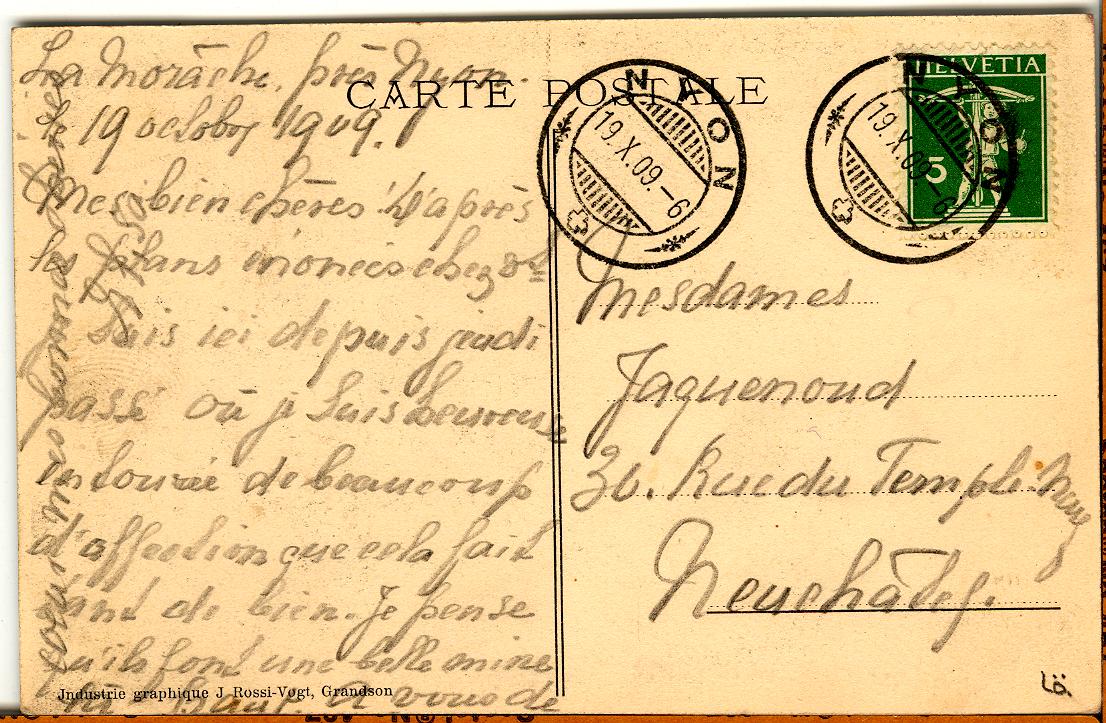 La Morâche, près Nyon.
19 octobre 1909.
CARTE POSTALE
Mes bien chères! D'après
les plans énoncés chez
suis ici depuis jeudi
passé où je suis heureuse
entourée de beaucoup
d'affection que cela fait
tant de bien. Je pense
qu'ils font une belle mine
là haut. A vous de
NYON
19.X.09.-6
NYON
19.X.09.-6
HELVETIA
5
Mesdames
Jaquenoud
36. Rue du Temple Neuf
Neuchâtel.
Industrie graphique J Rossi-Vogt, Grandson
Lö.